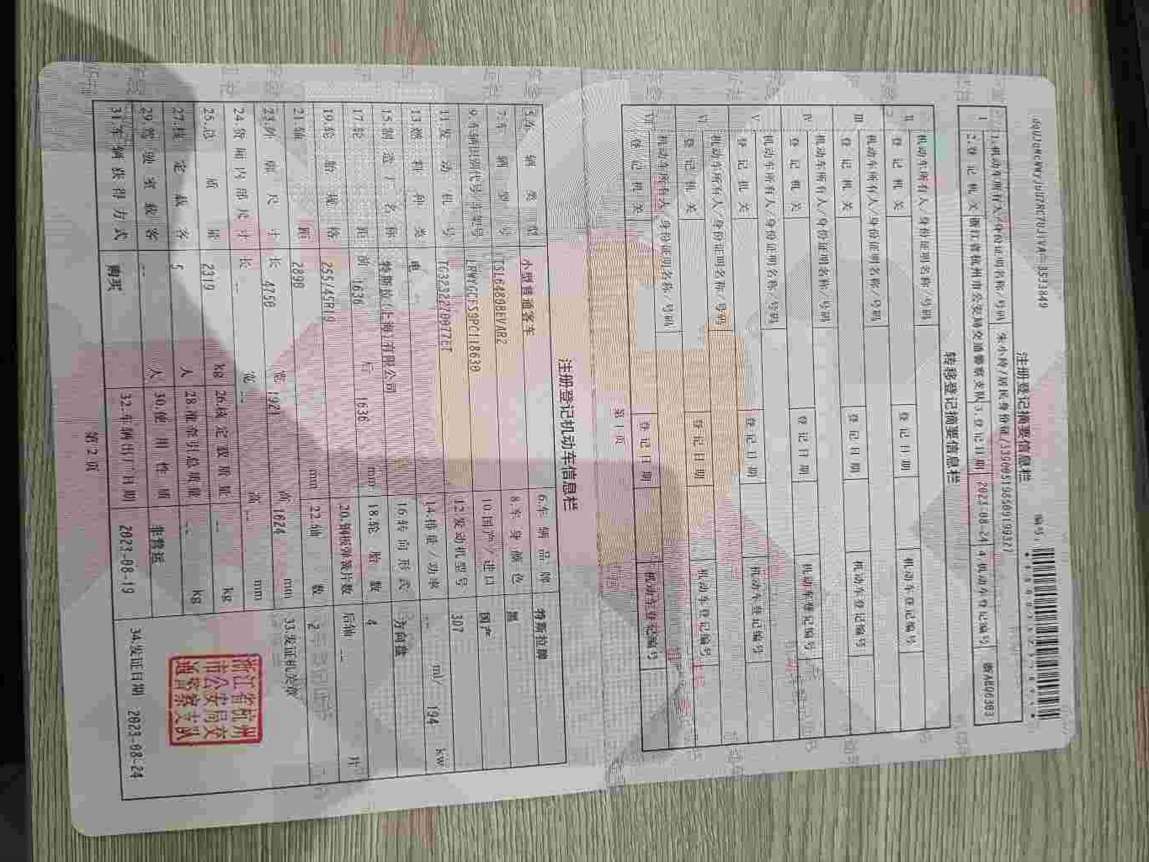 注册登记摘要信息栏
编号:
1.机动车所有人/身份证明名称/号码
2.登记机关 浙江省杭州市公安局交通警察支队 3.登记日期 2023-08-24 4.机动车登记编号
转移登记摘要信息栏
II 机动车所有人/身份证明名称/号码
登记机关 登记日期 机动车登记编号
III 机动车所有人/身份证明名称/号码
登记机关 登记日期 机动车登记编号
IV 机动车所有人/身份证明名称/号码
登记机关 登记日期 机动车登记编号
V 机动车所有人/身份证明名称/号码
登记机关 登记日期 机动车登记编号
VI 机动车所有人/身份证明名称/号码
登记机关 登记日期 机动车登记编号
VII 机动车所有人/身份证明名称/号码
登记机关 登记日期 机动车登记编号
第1页
注册登记机动车信息栏
5.车辆类型 小型普通客车 6.车辆品牌 特斯拉牌
7.车辆型号 TSL6480BEVAR2 8.车身颜色 黑
9.车辆识别代号/车架号 10.国产/进口 国产
11.发动机号 TG3232270077ET 12.发动机型号 3D7
13.燃料种类 电 14.排量/功率 -- ml/ 194 kw
15.制造厂名称 特斯拉(上海)有限公司 16.转向形式 方向盘
17.轮距 前 1636 后 1636 mm 18.轮胎数 4
19.轮胎规格 255/45R19 20.钢板弹簧片数 后轴 -- 片
21.轴距 2890 mm 22.轴数 2
23.外廓尺寸 长 4750 宽 1921 高 1624 mm 33.发证机关章
24.货厢内部尺寸 长 -- 宽 -- 高 -- mm
25.总质量 2319 kg 26.核定载质量 -- kg
27.核定载客 5 人 28.准牵引总质量 -- kg
29.驾驶室载客 -- 人 30.使用性质 非营运
31.车辆获得方式 购买 32.车辆出厂日期 2023-08-19 34.发证日期 2023-08-24
浙江省杭州
市公安局交
通警察支队
第2页